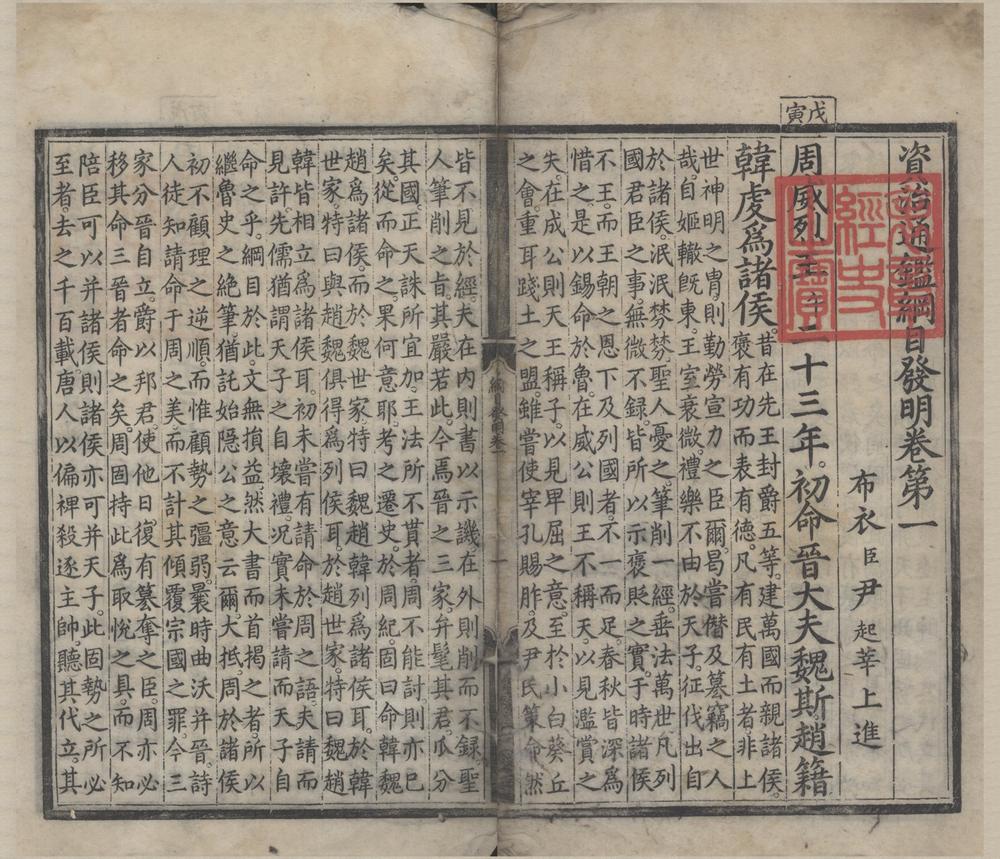 戊寅
資治通鑑綱目發明卷第一
布衣臣尹起莘上進
周威烈王二十三年。初命晉大夫魏斯趙籍
韓虔爲諸侯。昔在先王封爵五等。建萬國而親諸侯。
褒有功而表有德。凡有民有土者。非上
世神明之胄。則勤勞宣力之臣爾。曷嘗僭及篡竊之人
哉。自姬轍旣東。王室衰微。禮樂不由於天子。征伐出自
於諸侯。泯泯棼棼。聖人憂之。筆削一經。垂法萬世。凡列
國君臣之事。無微不録。皆所以示褒貶之實。于時諸侯
不王。而王朝之恩下及列國者。不一而足。春秋皆深爲
惜之。是以錫命於魯。在威公則王不稱天。以見濫賞之
失。在成公則天王稱子。以見卑屈之意。至於小白葵丘
之會。重耳踐土之盟。雖嘗使宰孔賜胙。及尹氏策命。然
綱目發明卷一
一
皆不見於經。夫在内則書以示譏。在外則削而不録。聖
人筆削之旨。其嚴若此。今焉晉之三家。弁髦其君。瓜分
其國。正天誅所宜加。王法所不貰者。周不能討則亦已
矣。從而命之。果何意耶。考之遷史。於周紀。固曰命韓魏
趙爲諸侯。而於魏世家。特曰魏趙韓列爲諸侯耳。於韓
世家。特曰與趙魏俱得爲列侯耳。於趙世家。特曰魏趙
韓皆相立爲諸侯耳。初未嘗有請命於周之語。夫請而
見許。先儒猶謂天子之自壞禮。况實未嘗請。而天子自
命之乎。綱目於此。文無損益。然大書而首揭之者。所以
繼魯史之絶筆。猶託始隱公之意云爾。大抵。周於諸侯
初不顧理之逆順。而惟顧勢之彊弱。曩時曲沃并晉。詩
人徒知請命于周之美。而不計其傾覆宗國之罪。今三
家分晉自立。爵以邦君。使他日復有篡奪之臣。周亦必
移其命三晉者命之矣。周固持此爲取悅之具。而不知
陪臣可以并諸侯。則諸侯亦可并天子。此固勢之所必
至者。去之千百載。唐人以偏裨殺逐主帥。聽其代立。其
經史
之寶